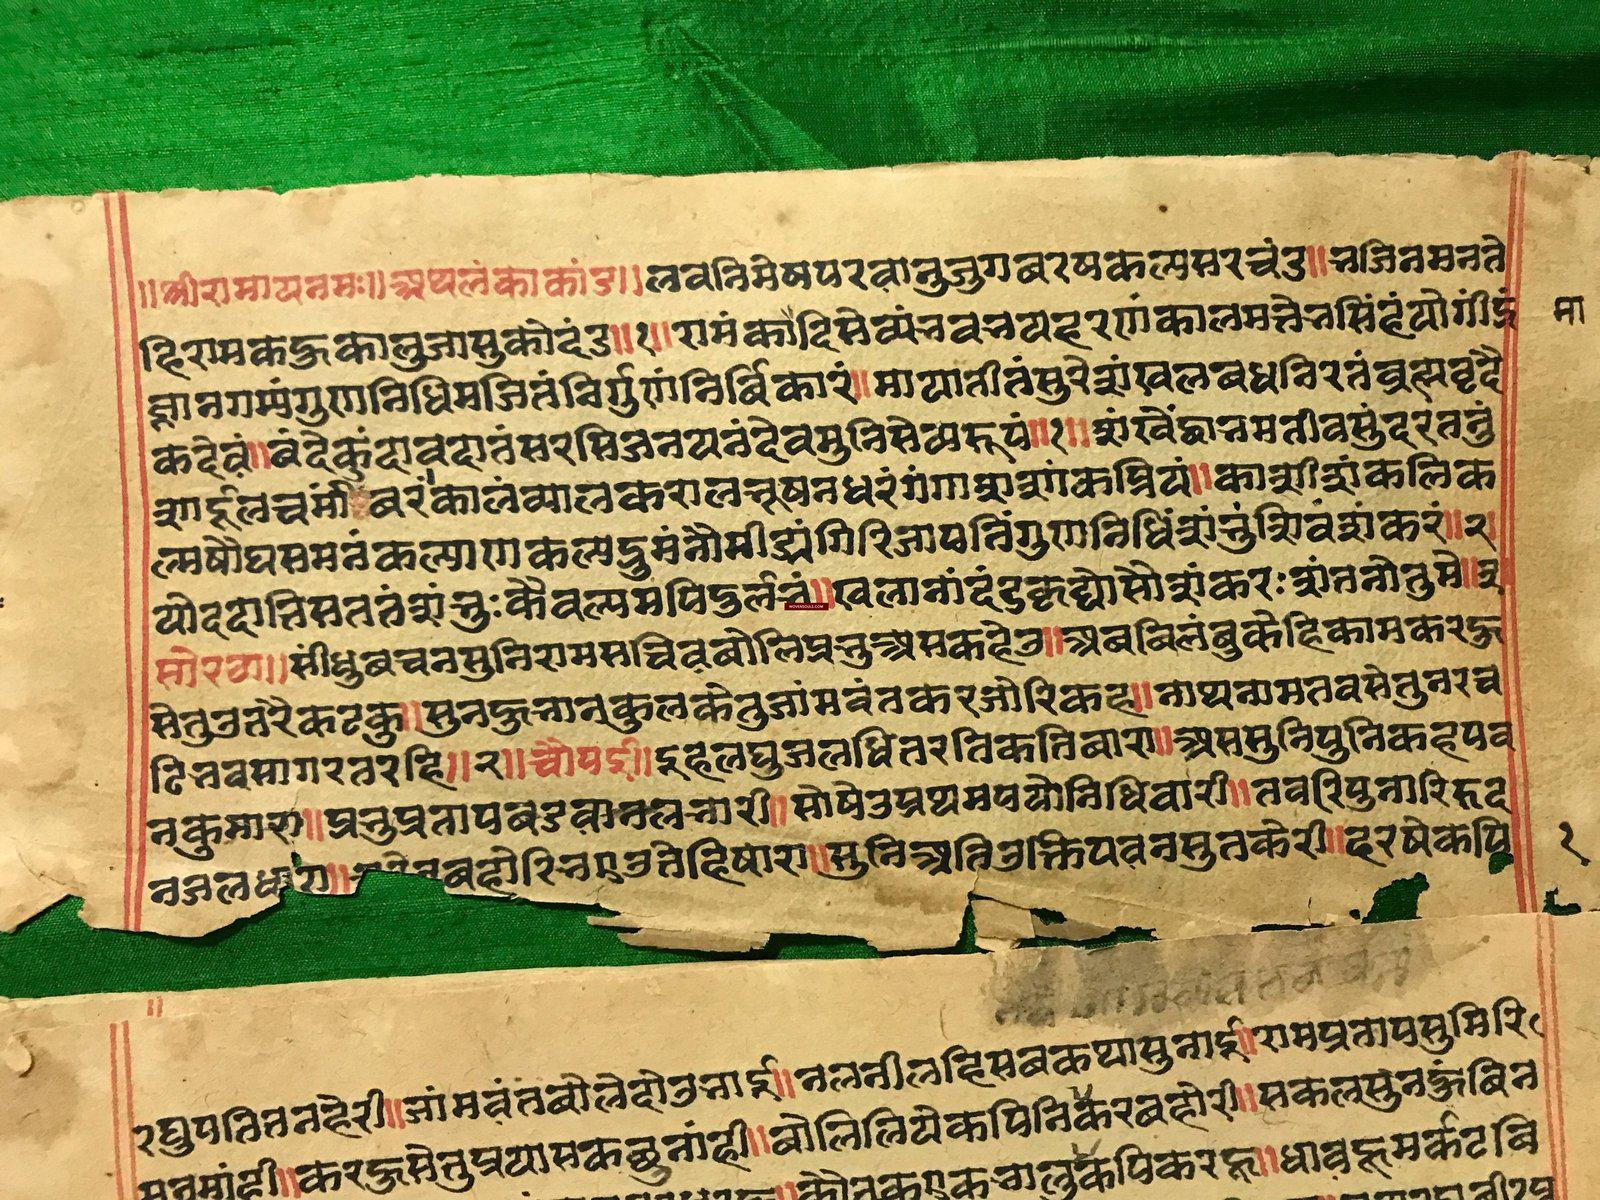 ॥श्रीरामायनमः॥अथलंकाकांड॥लवनिमेषपरवानुजुगबरषकल्पसरचंड॥भजिनमनते
हिरामकहुकालुजासुकोदंड॥१॥रामंकामादिसेव्यंभवभयहरणंकालमत्तेभसिंहंयोगींद्रं मा
ज्ञानगम्यंगुणनिधिमजितंनिर्गुणंनिर्बिकारं॥मायातीतंसुरेशंखलबधनिरतंब्रह्मबृंदै
कदेवं॥बंदेकुंदावदातंसरसिजनयनंदेवमुनिसेव्यरूपं॥१॥शंखेंद्वाभमतीवसुंदरतनुं
शार्दूलचर्मांबरंकालंव्यालकरालभूषनधरंगंगाशशांकप्रियं॥काशीशंकलिक
ल्मषौघसमनंकल्याणकल्पद्रुमंनौमीड्यंगिरिजापतिंगुणनिधिंशंभुंशिवंशंकरं॥२
योददातिसततंशंभुःकैवल्यमपिदुर्लभं॥खलानांदंडकृद्योसौशंकरःशंतनोतुमे॥३
सोरठा॥सींधुबचनसुनिरामसचिवबोलिप्रभुअसकहेउ॥अबबिलंबुकेहिकामकरहु
सेतुउतरैकटकु॥सुनहुभानुकुलकेतुजांमवंतकरजोरिकह॥नाथनामतवसेतुनरच
ढिभवसागरतरहि॥२॥चौपई॥इहलघुजलधितरतिकतिबारा॥अससुनिपुनिकहपव
नकुमारा॥प्रभुप्रतापबडवानलभारी॥सोषेउप्रथमपयोनिधिवारी॥तवरिपुनारिरुद १
नजलधारा॥बहोरिभएउतेहिषारा॥सुनिअतिउक्तिपवनसुतकेरी॥हरषेकपि
॥
रघुपतितनहेरी॥जांमवंतबोलेदोउभाई॥नलनीलहिसबकथासुनाई॥रामप्रतापसुमिरि
मनमांही॥करहुसेतुप्रयासकछुनांही॥बोलिलियेकपिनिकरबहोरी॥सकलसुनहुंबिन
कौतुकएकभालुकपिकरहू॥धावहुमर्कटबि